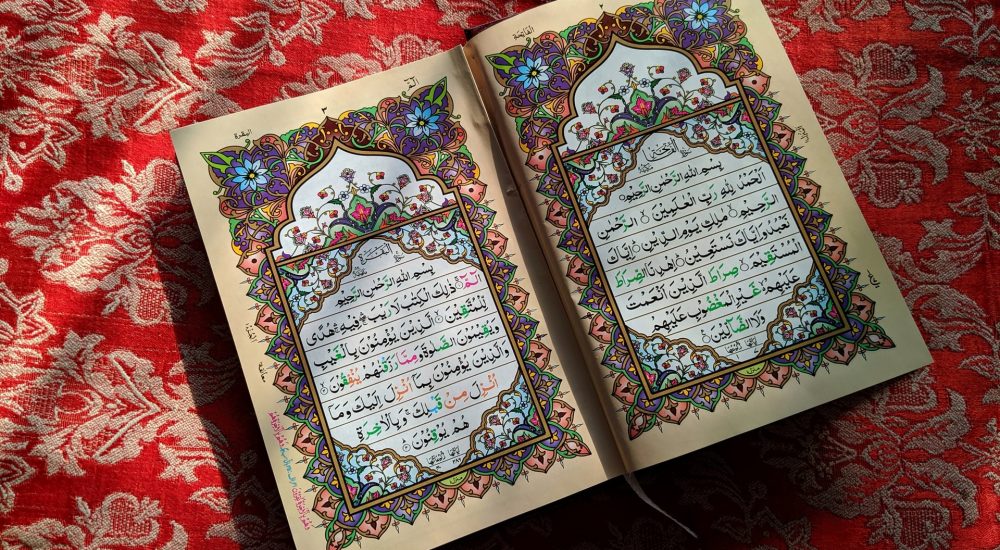 ٢
الفاتحة
بِسْمِ اللّٰهِ الرَّحْمٰنِ الرَّحِيْمِ
اَلْحَمْدُ لِلّٰهِ رَبِّ الْعٰلَمِيْنَ ۝ الرَّحْمٰنِ
الرَّحِيْمِ ۝ مٰلِكِ يَوْمِ الدِّيْنِ ۝ اِيَّاكَ
نَعْبُدُ وَاِيَّاكَ نَسْتَعِيْنُ ۝ اِهْدِنَا الصِّرَاطَ
الْمُسْتَقِيْمَ ۝ صِرَاطَ الَّذِيْنَ اَنْعَمْتَ
عَلَيْهِمْ ۝ غَيْرِ الْمَغْضُوْبِ عَلَيْهِمْ
وَلَا الضَّآلِّيْنَ ۝
٣
البقرة
بِسْمِ اللّٰهِ الرَّحْمٰنِ الرَّحِيْمِ
الٓمّٓ ۝ ذٰلِكَ الْكِتٰبُ لَا رَيْبَ ۛ فِيْهِ ۛ هُدًى
لِّلْمُتَّقِيْنَ ۝ الَّذِيْنَ يُؤْمِنُوْنَ بِالْغَيْبِ
وَيُقِيْمُوْنَ الصَّلٰوةَ وَمِمَّا رَزَقْنٰهُمْ يُنْفِقُوْنَ ۝
وَالَّذِيْنَ يُؤْمِنُوْنَ بِمَآ اُنْزِلَ اِلَيْكَ وَمَآ
اُنْزِلَ مِنْ قَبْلِكَ ۚ وَبِالْاٰخِرَةِ
هُمْ يُوْقِنُوْنَ ۝